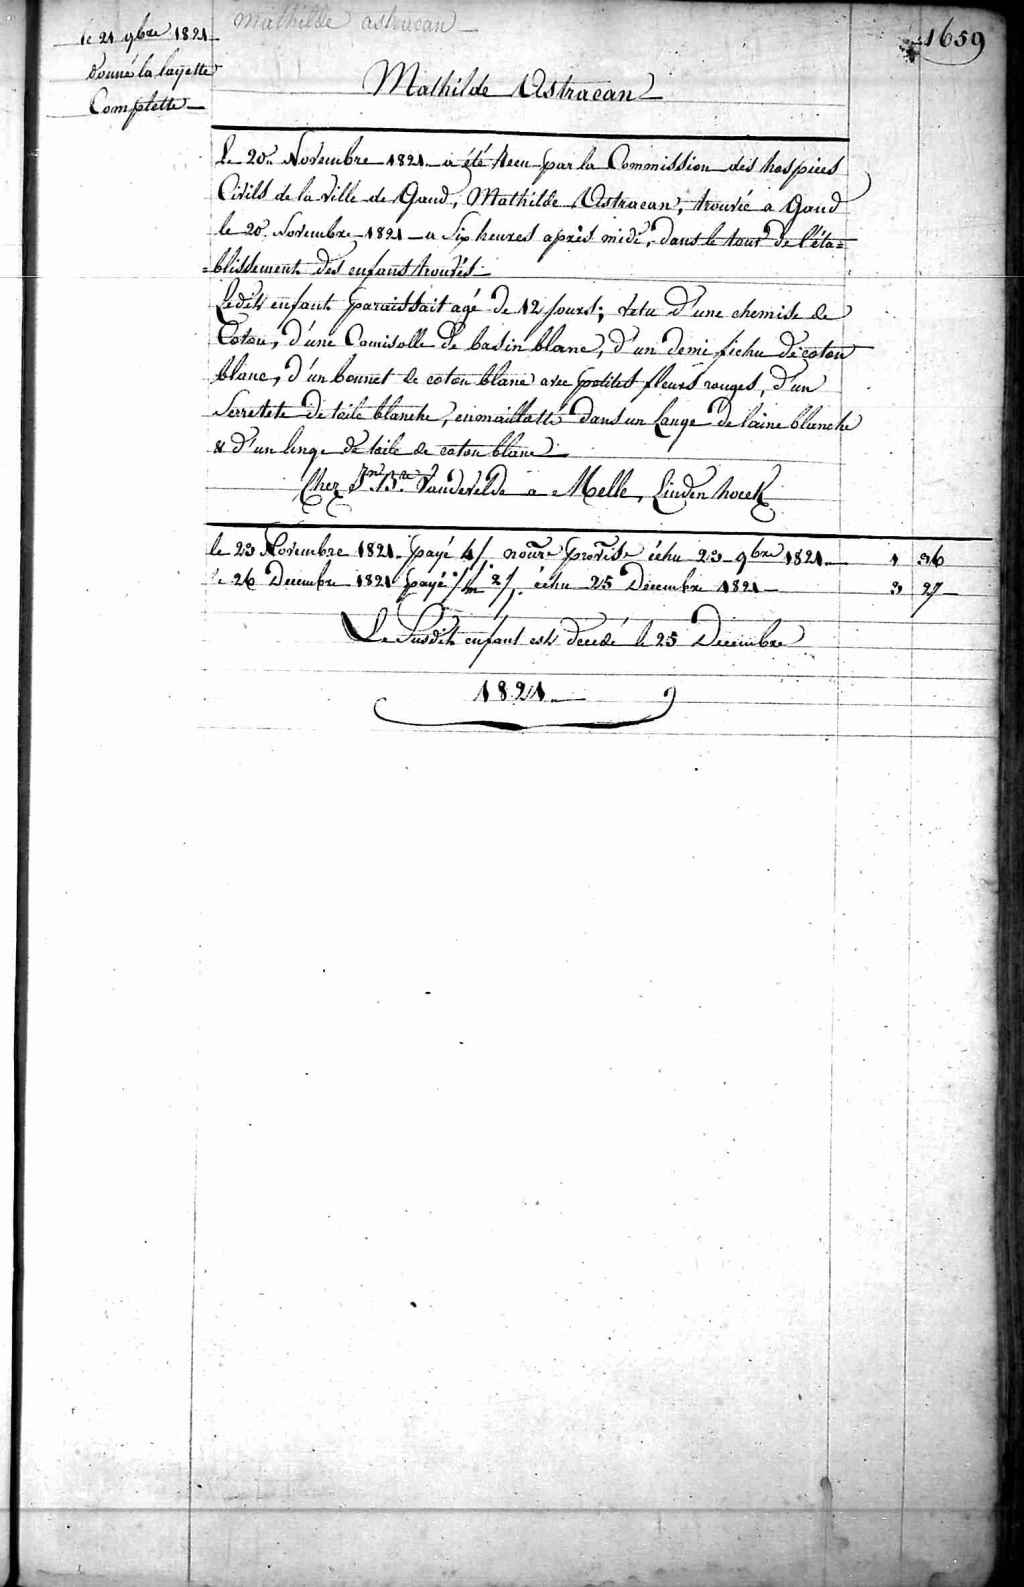 Mathilde astracan
1659
le 21 9bre 1821
donné la layette
Complette
Mathilde Astracan
Le 20 Novembre 1821 a été Recu par la Commission des hospices
Civils de la ville de Gand, Mathilde Astracan, trouvée a Gand
le 20 Novembre 1821 a Six heures après midi, dans le tour de l'éta=
=blissement des enfans trouvés
Ledit enfant paraissait agé de 12 jours; vetu d'une chemise de
Coton, d'une Camisolle de basin blanc, d'un demi fichu de coton
blanc, d'un bonnet de coton blanc avec petites fleurs rouges, d'un
Serretete de toile blanche, enmaillotté dans un Lange de laine blanche
& d'un linge de toile de coton blanc
Chez Jn Bte Vandevelde a Melle, Linden hoek
le 23 Novembre 1821 payé 4/ nourre provise échu 23 9bre 1821 1 36
le 26 Decembre 1821 payé 1/m 2/ échu 25 Décembre 1821 3 27
Le Susdit enfant est decedé le 25 Decembre
1821